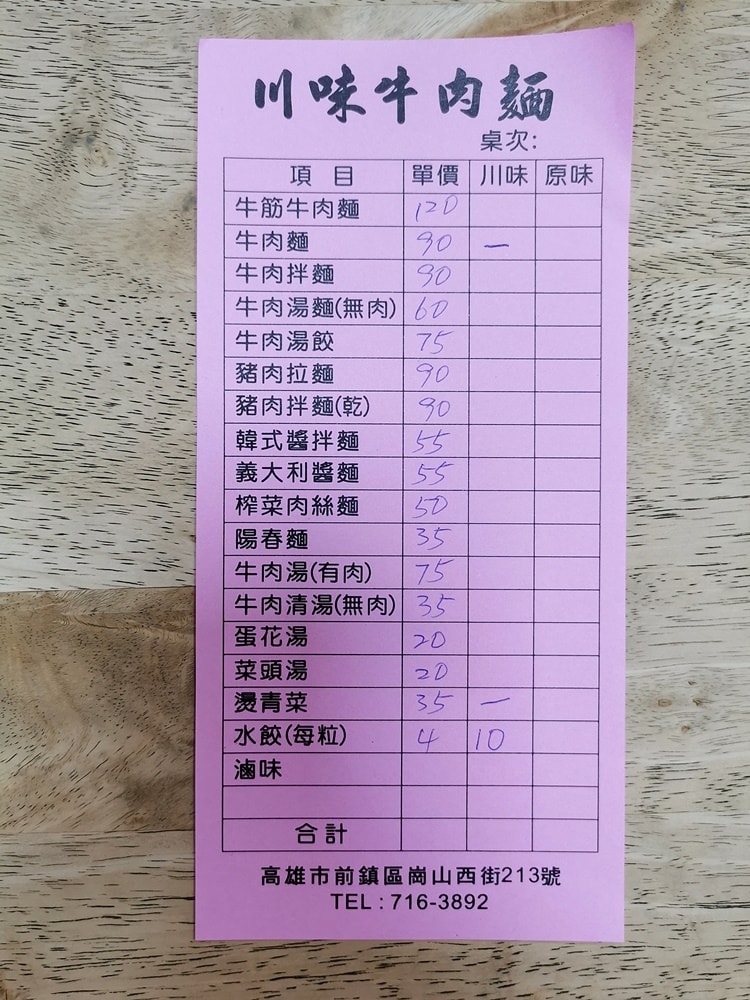 川味牛肉麵
桌次:
項目 單價 川味 原味
牛筋牛肉麵 120
牛肉麵 90 一
牛肉拌麵 90
牛肉湯麵(無肉) 60
牛肉湯餃 75
豬肉拉麵 90
豬肉拌麵(乾) 90
韓式醬拌麵 55
義大利醬麵 55
榨菜肉絲麵 50
陽春麵 35
牛肉湯(有肉) 75
牛肉清湯(無肉) 35
蛋花湯 20
菜頭湯 20
燙青菜 35 一
水餃(每粒) 4 10
滷味
合計
高雄市前鎮區崗山西街213號
TEL : 716-3892